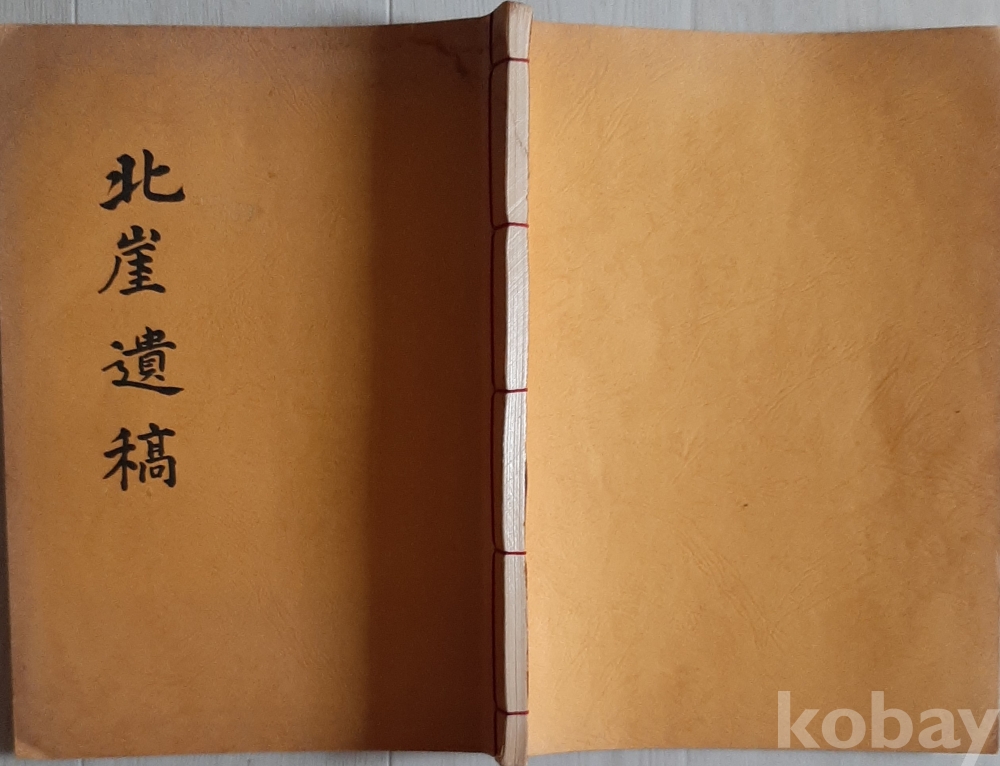 北崖遺稿
kobay